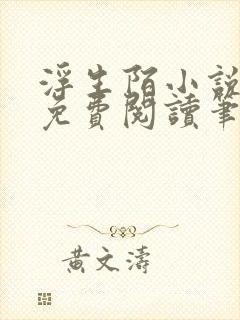 浮生陌小說
免費閱讀筆
黃文濤